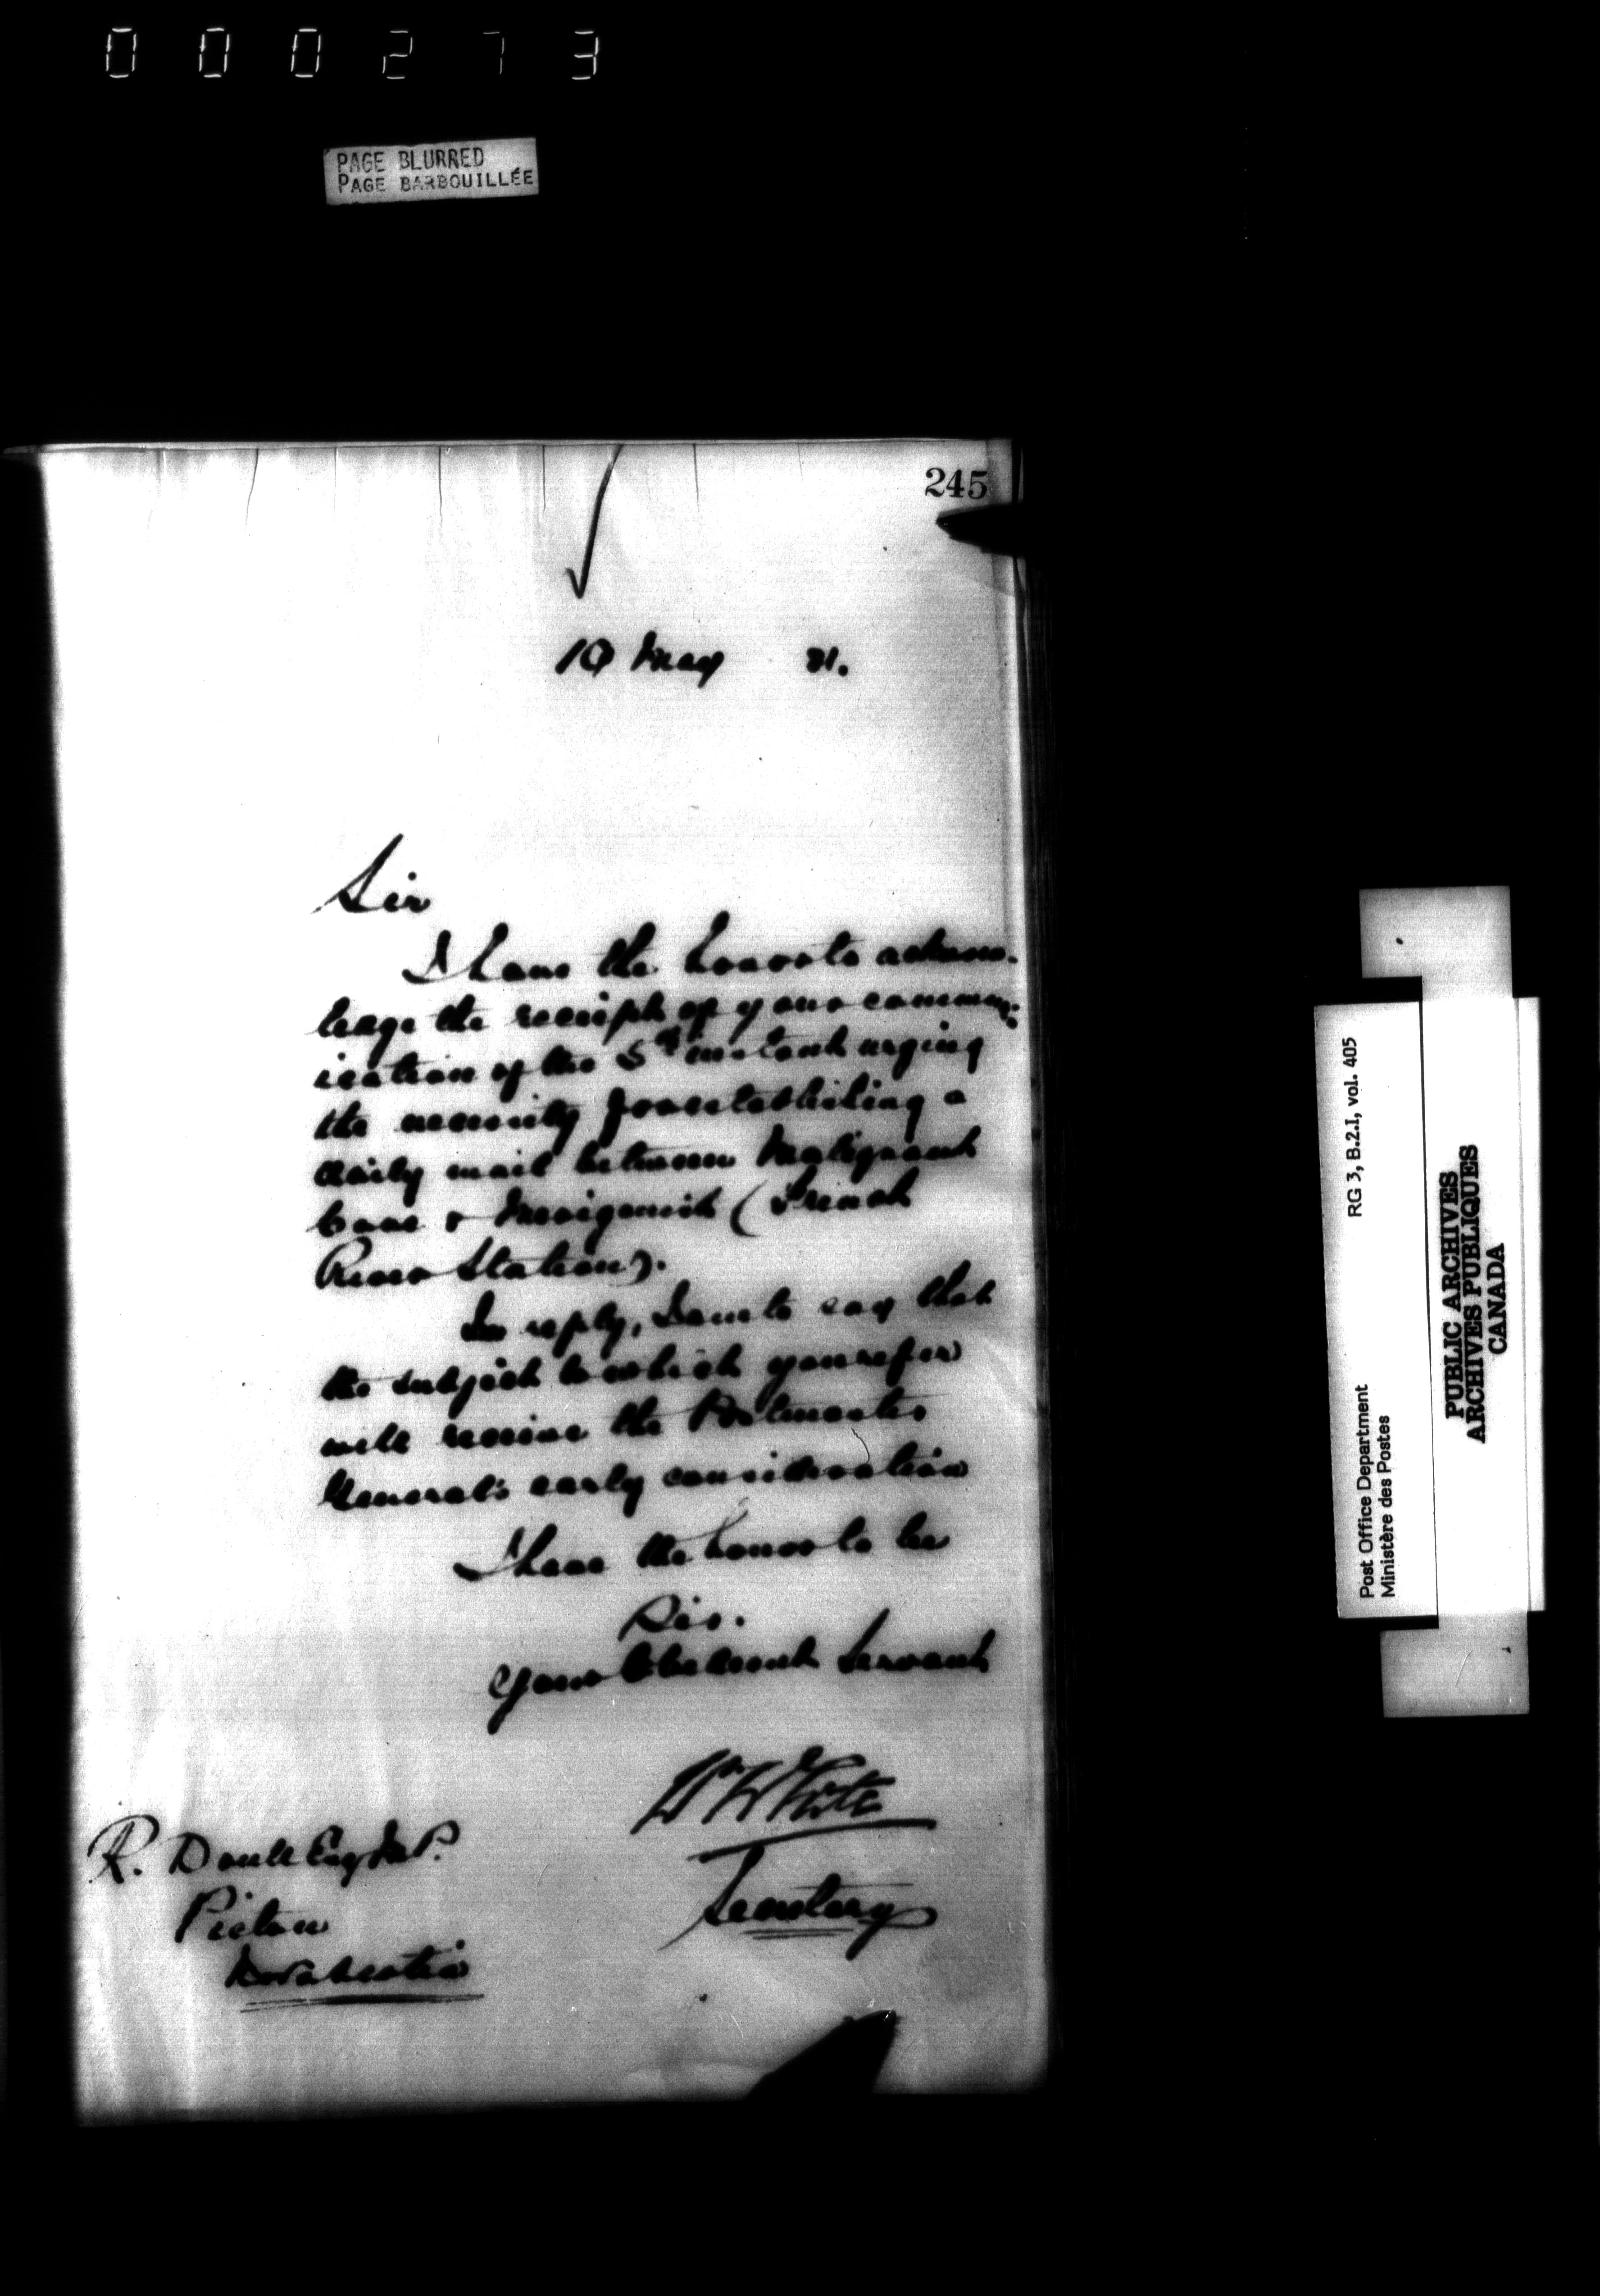 000273
PAGE BLURRED
PAGE BARBOUILLÉE
245
10 May 81.
Sir
I have the honor to acknow-
ledge the receipt of your commun-
ication of the 5th instant urging
the necessity for establishing a
daily mail between Malignant
Cove & Merigomish (French
River Station).
In reply, I am to say that
the subject to which you refer
will receive the Postmaster
General's early consideration
I have the honor to be
Sir.
Your Obedient Servant
Wm White
Secretary
R. Doull Esq M.P.
Pictou
Nova Scotia
RG 3, B.2.I, vol. 405
Post Office Department
Ministère des Postes
PUBLIC ARCHIVES
ARCHIVES PUBLIQUES
CANADA